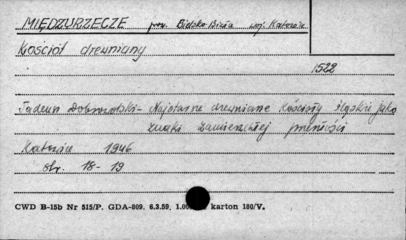 MIĘDZURZECZE pow. Bielsko Biała woj. Katowice
Kościół drewniany
1522
Tadeusz Dobrowolski - Najstarsze drewniane Kościoły śląskie jako
znaki zamierzchłej przeszłości
Katowice 1946
str. 18-19
CWD B-15b Nr 515/P. GDA-809. 6.3.59. 1.00 karton 180/V.